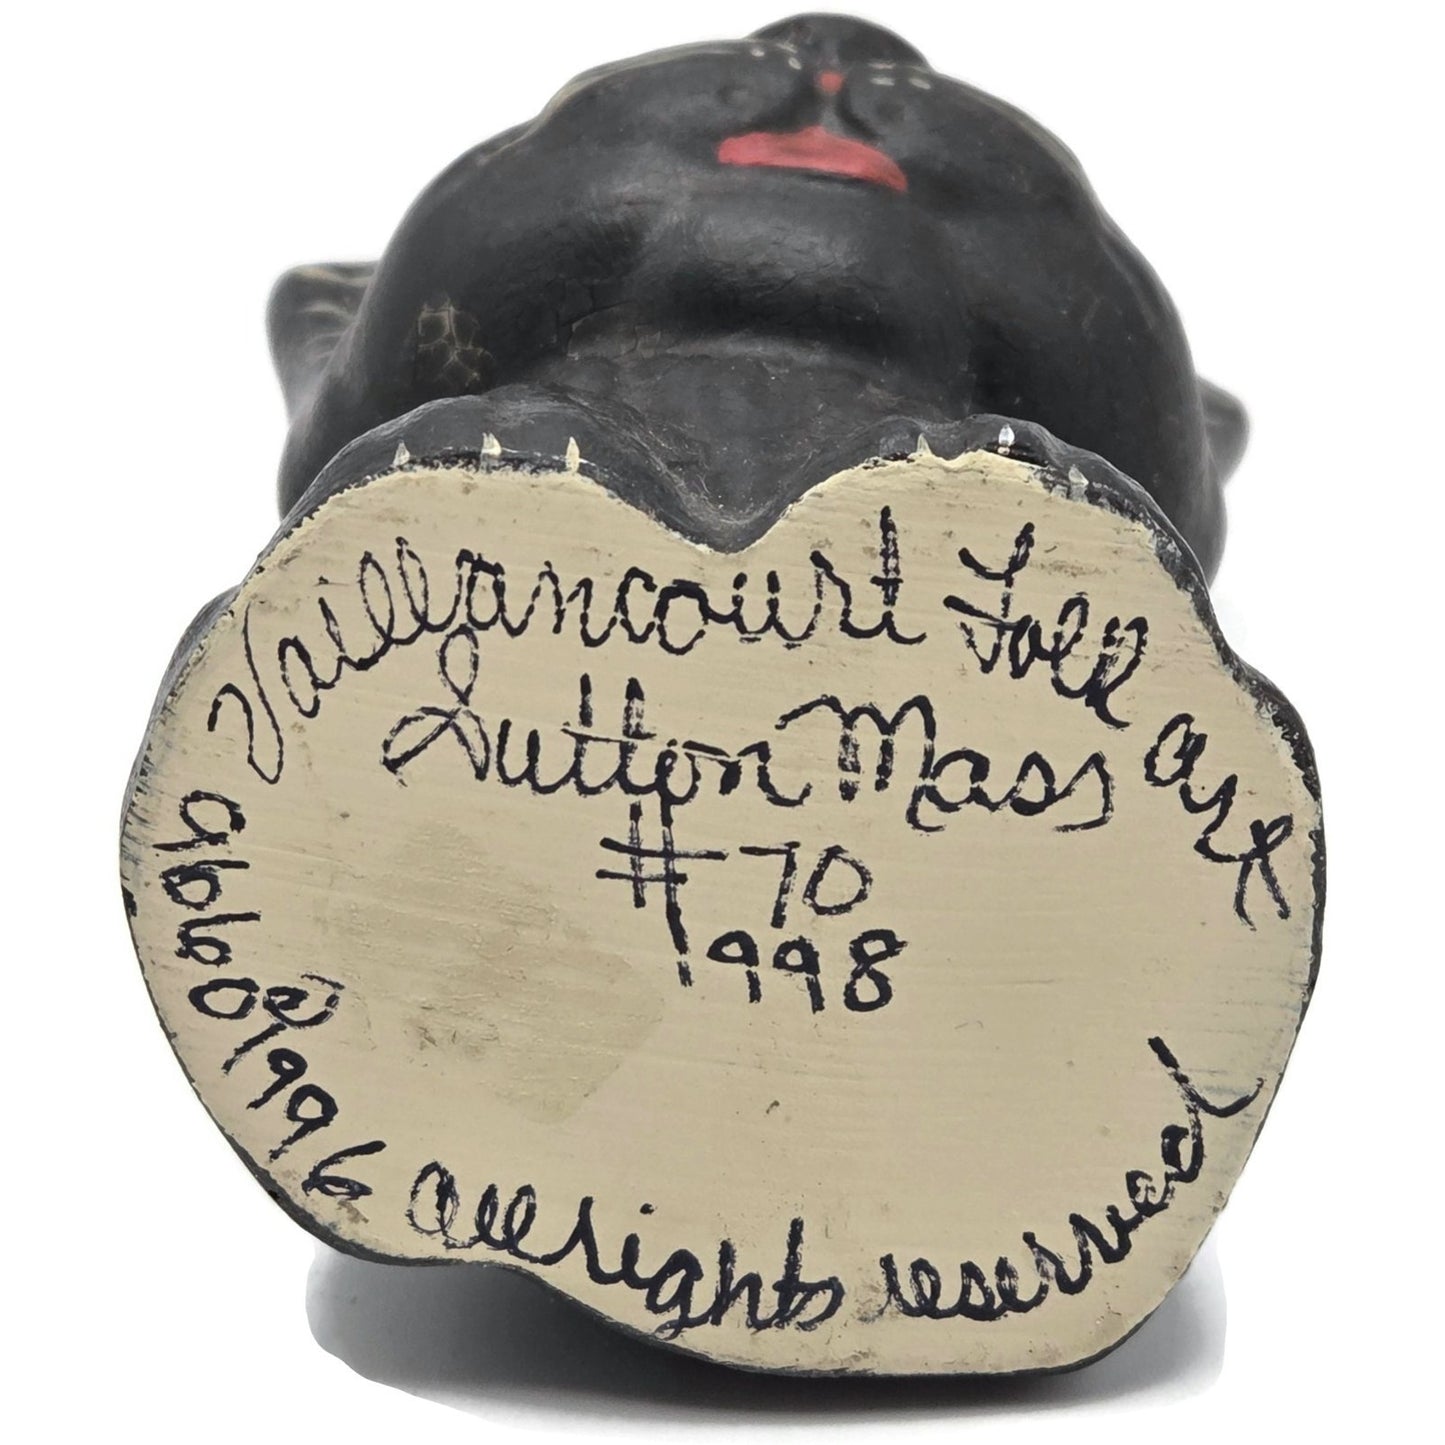 Vaillancourt Folk Art
Sutton Mass
#70
1998
9660 © 1996 All rights reserved